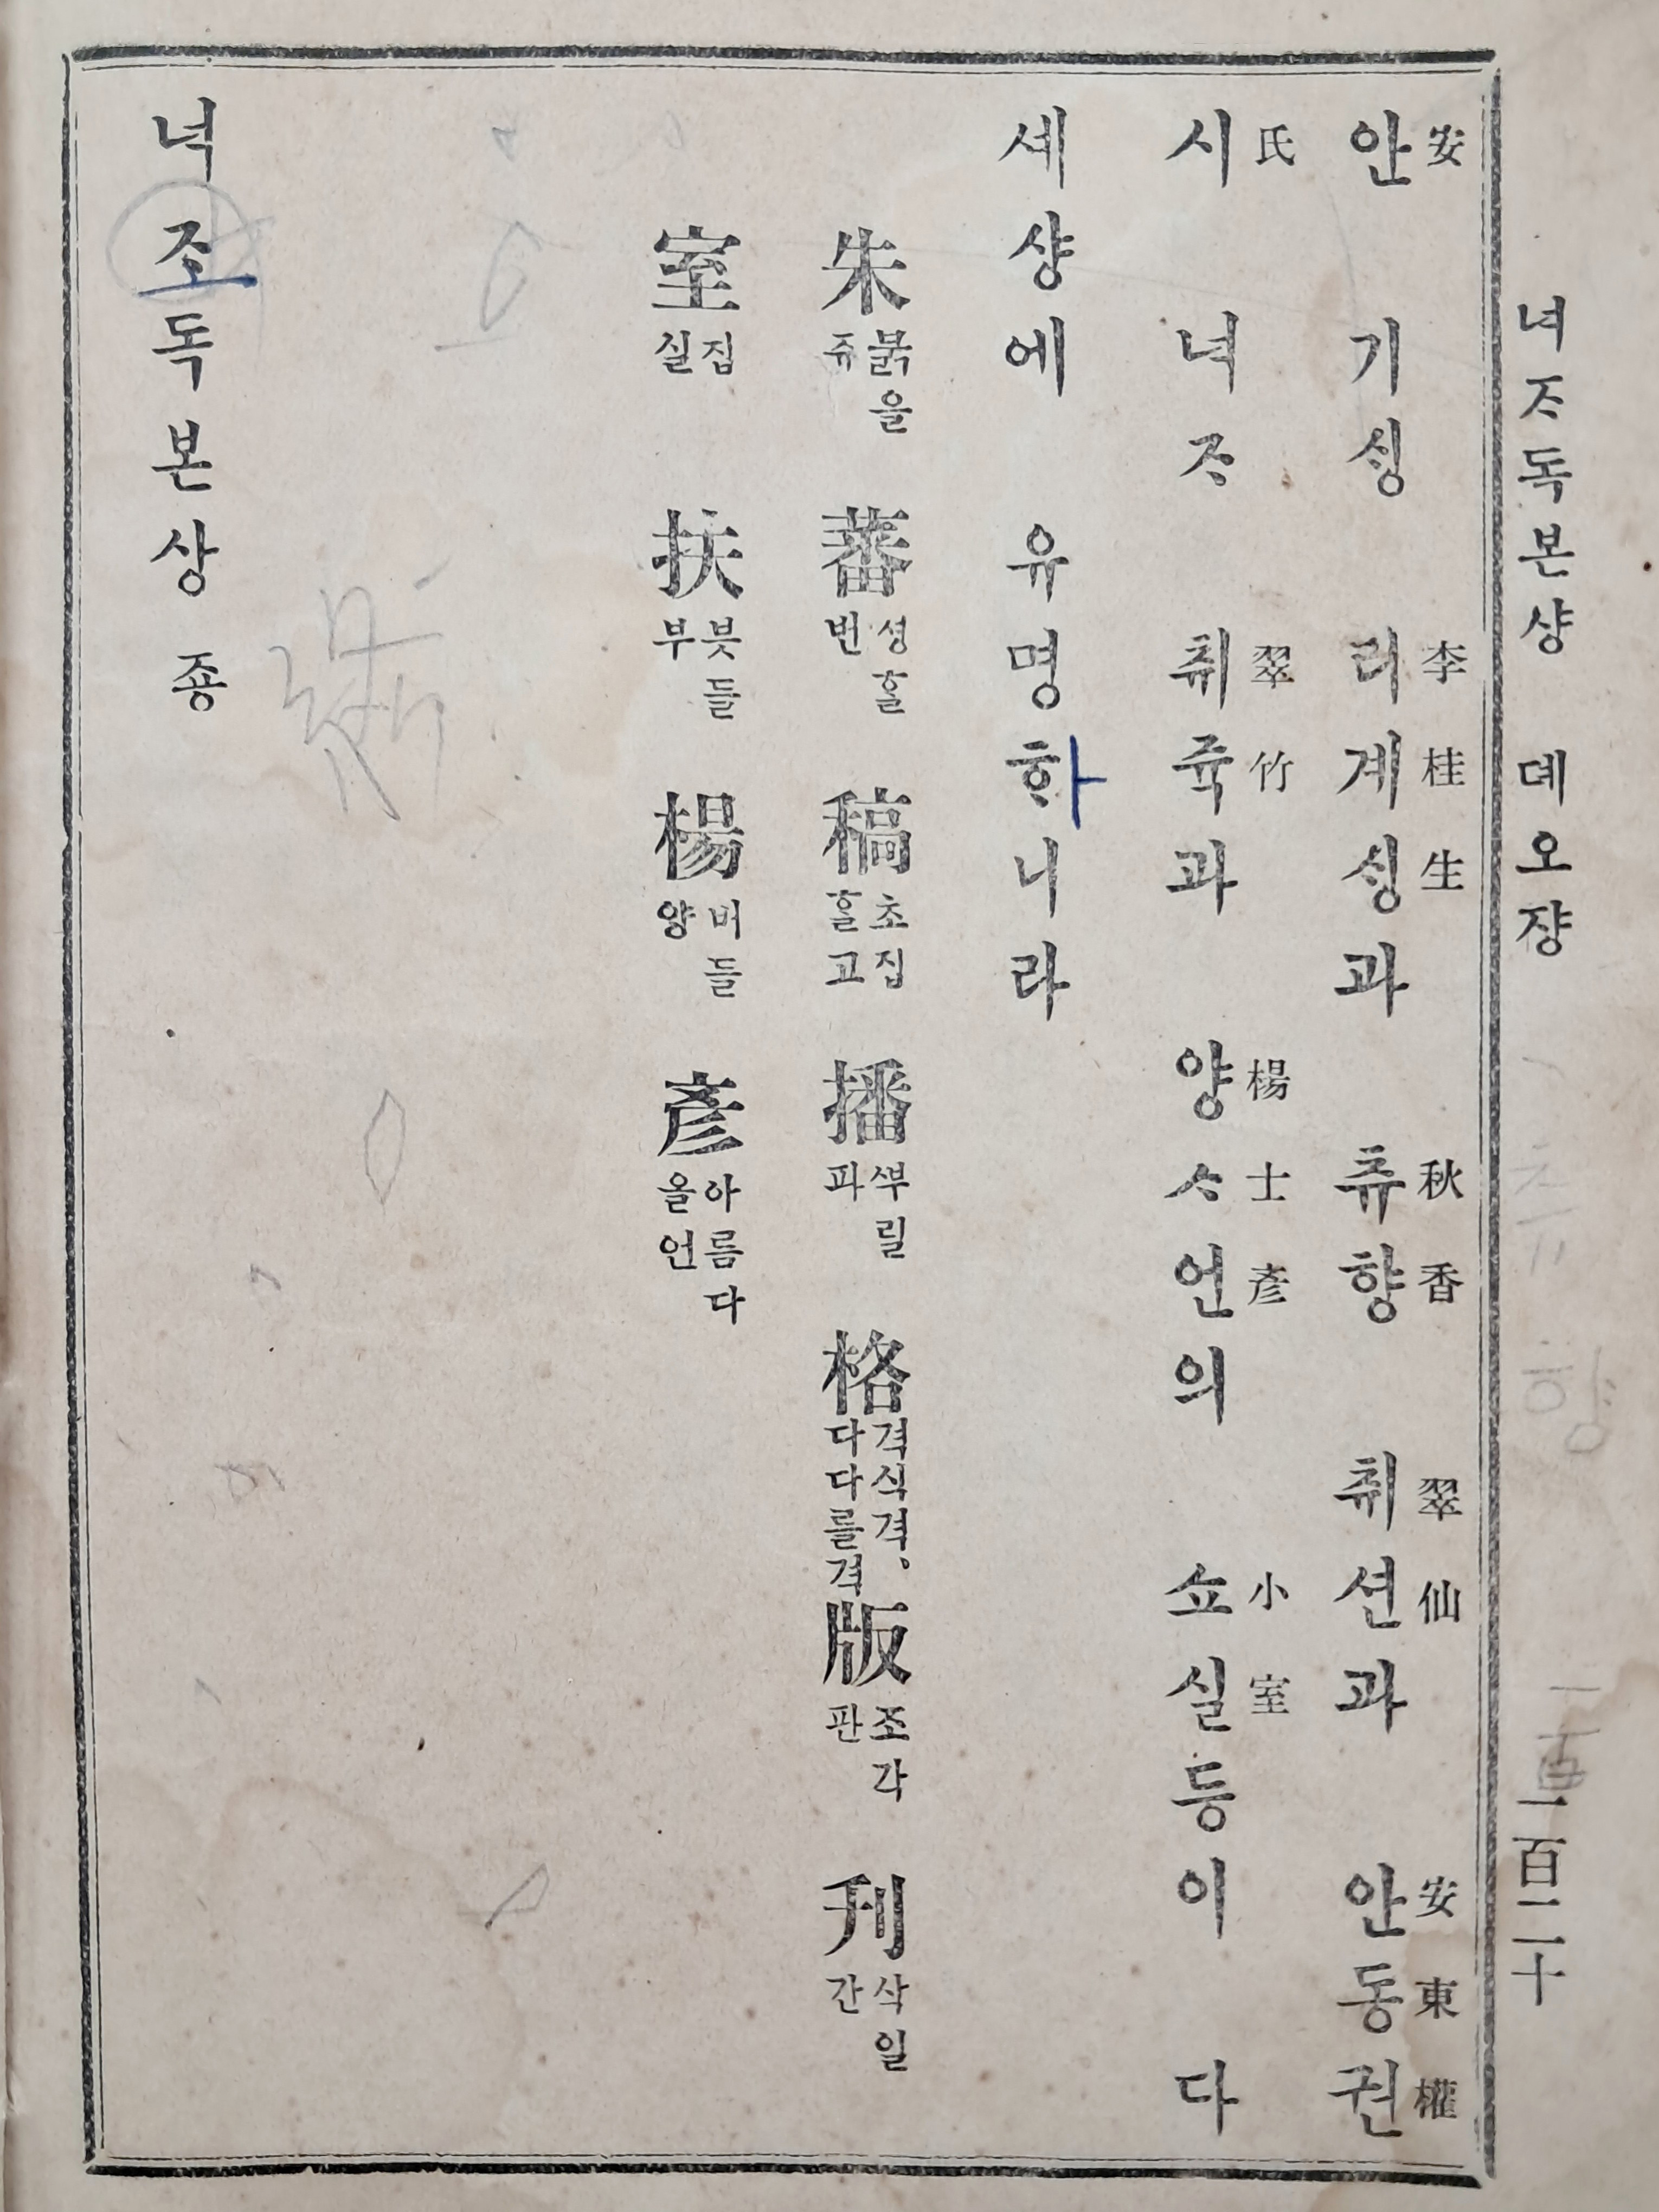 녀ᄌᆞ독본샹 뎨오쟝 一百二十
츄향
安 李桂生 秋香 翠仙 安東權
안 기ᄉᆡᆼ 리계ᄉᆡᆼ과 츄향 취션과 안동권
氏 翠竹 楊士彦 小室
시 녀ᄌᆞ 취쥭과 양ᄉᆞ언의 쇼실등이 다
셰샹에 유명ᄒᆞ니라
朱 붉을 쥬 蕃 셩ᄒᆞᆯ 번 稿 초집ᄒᆞᆯ고 播 ᄲᅮ릴 파 格 격식격。다다를격 版 조각 판 刊 삭일 간
室 집 실 扶 븟들 부 楊 버들 양 彦 아름다올언
녀조독본상 죵